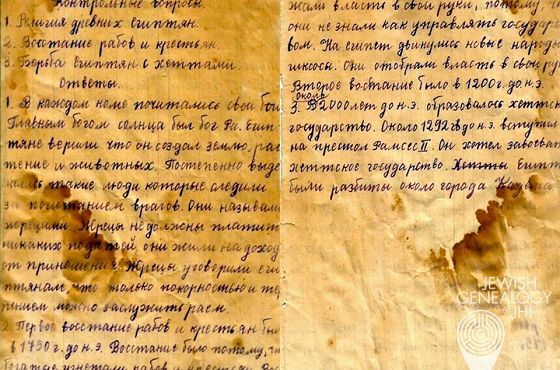 Контрольные вопросы.
1. Религия древних египтян.
2. Восстание рабов и крестьян.
3. Борьба египтян с хеттами.
Ответы.
1. В каждом номе почитались свои боги
Главным богом солнца был бог Ра. Егип-
тяне верили что он создал землю, рас-
тение и животных. Постепенно выде-
лись такие люди которые следили
за почитанием врагов. Они называли
жрецами. Жрецы не должны платить
никаких податей, они жили на доход
от приношение. Жрецы уговорили еги-
птянам, что только покорностью и тер
пением можно заслужить раем.
2. Первое восстание рабов и крестьян бы
в 1750 г. до н.э. Восстание было потому, чт
богатые угнетали рабов и крестьян. Вос
жали власть в свои руки, потому, ч
они не знали как управлять государс
вом. На египет двинулись новые народы
гиксосы. Они отобрали власть в свои ру
Второе востание было в 1200 г. до н.э.
около
3. В 2000 лет до н.э. образовалось хеттс
государство. Около 1292 г до н.э. вступил
на престол Рамсес II. Он хотел завоеват
хеттское государство. Хетты Египт
были разбиты около города Кадеша
JEWISH
GENEALOGY
JHI